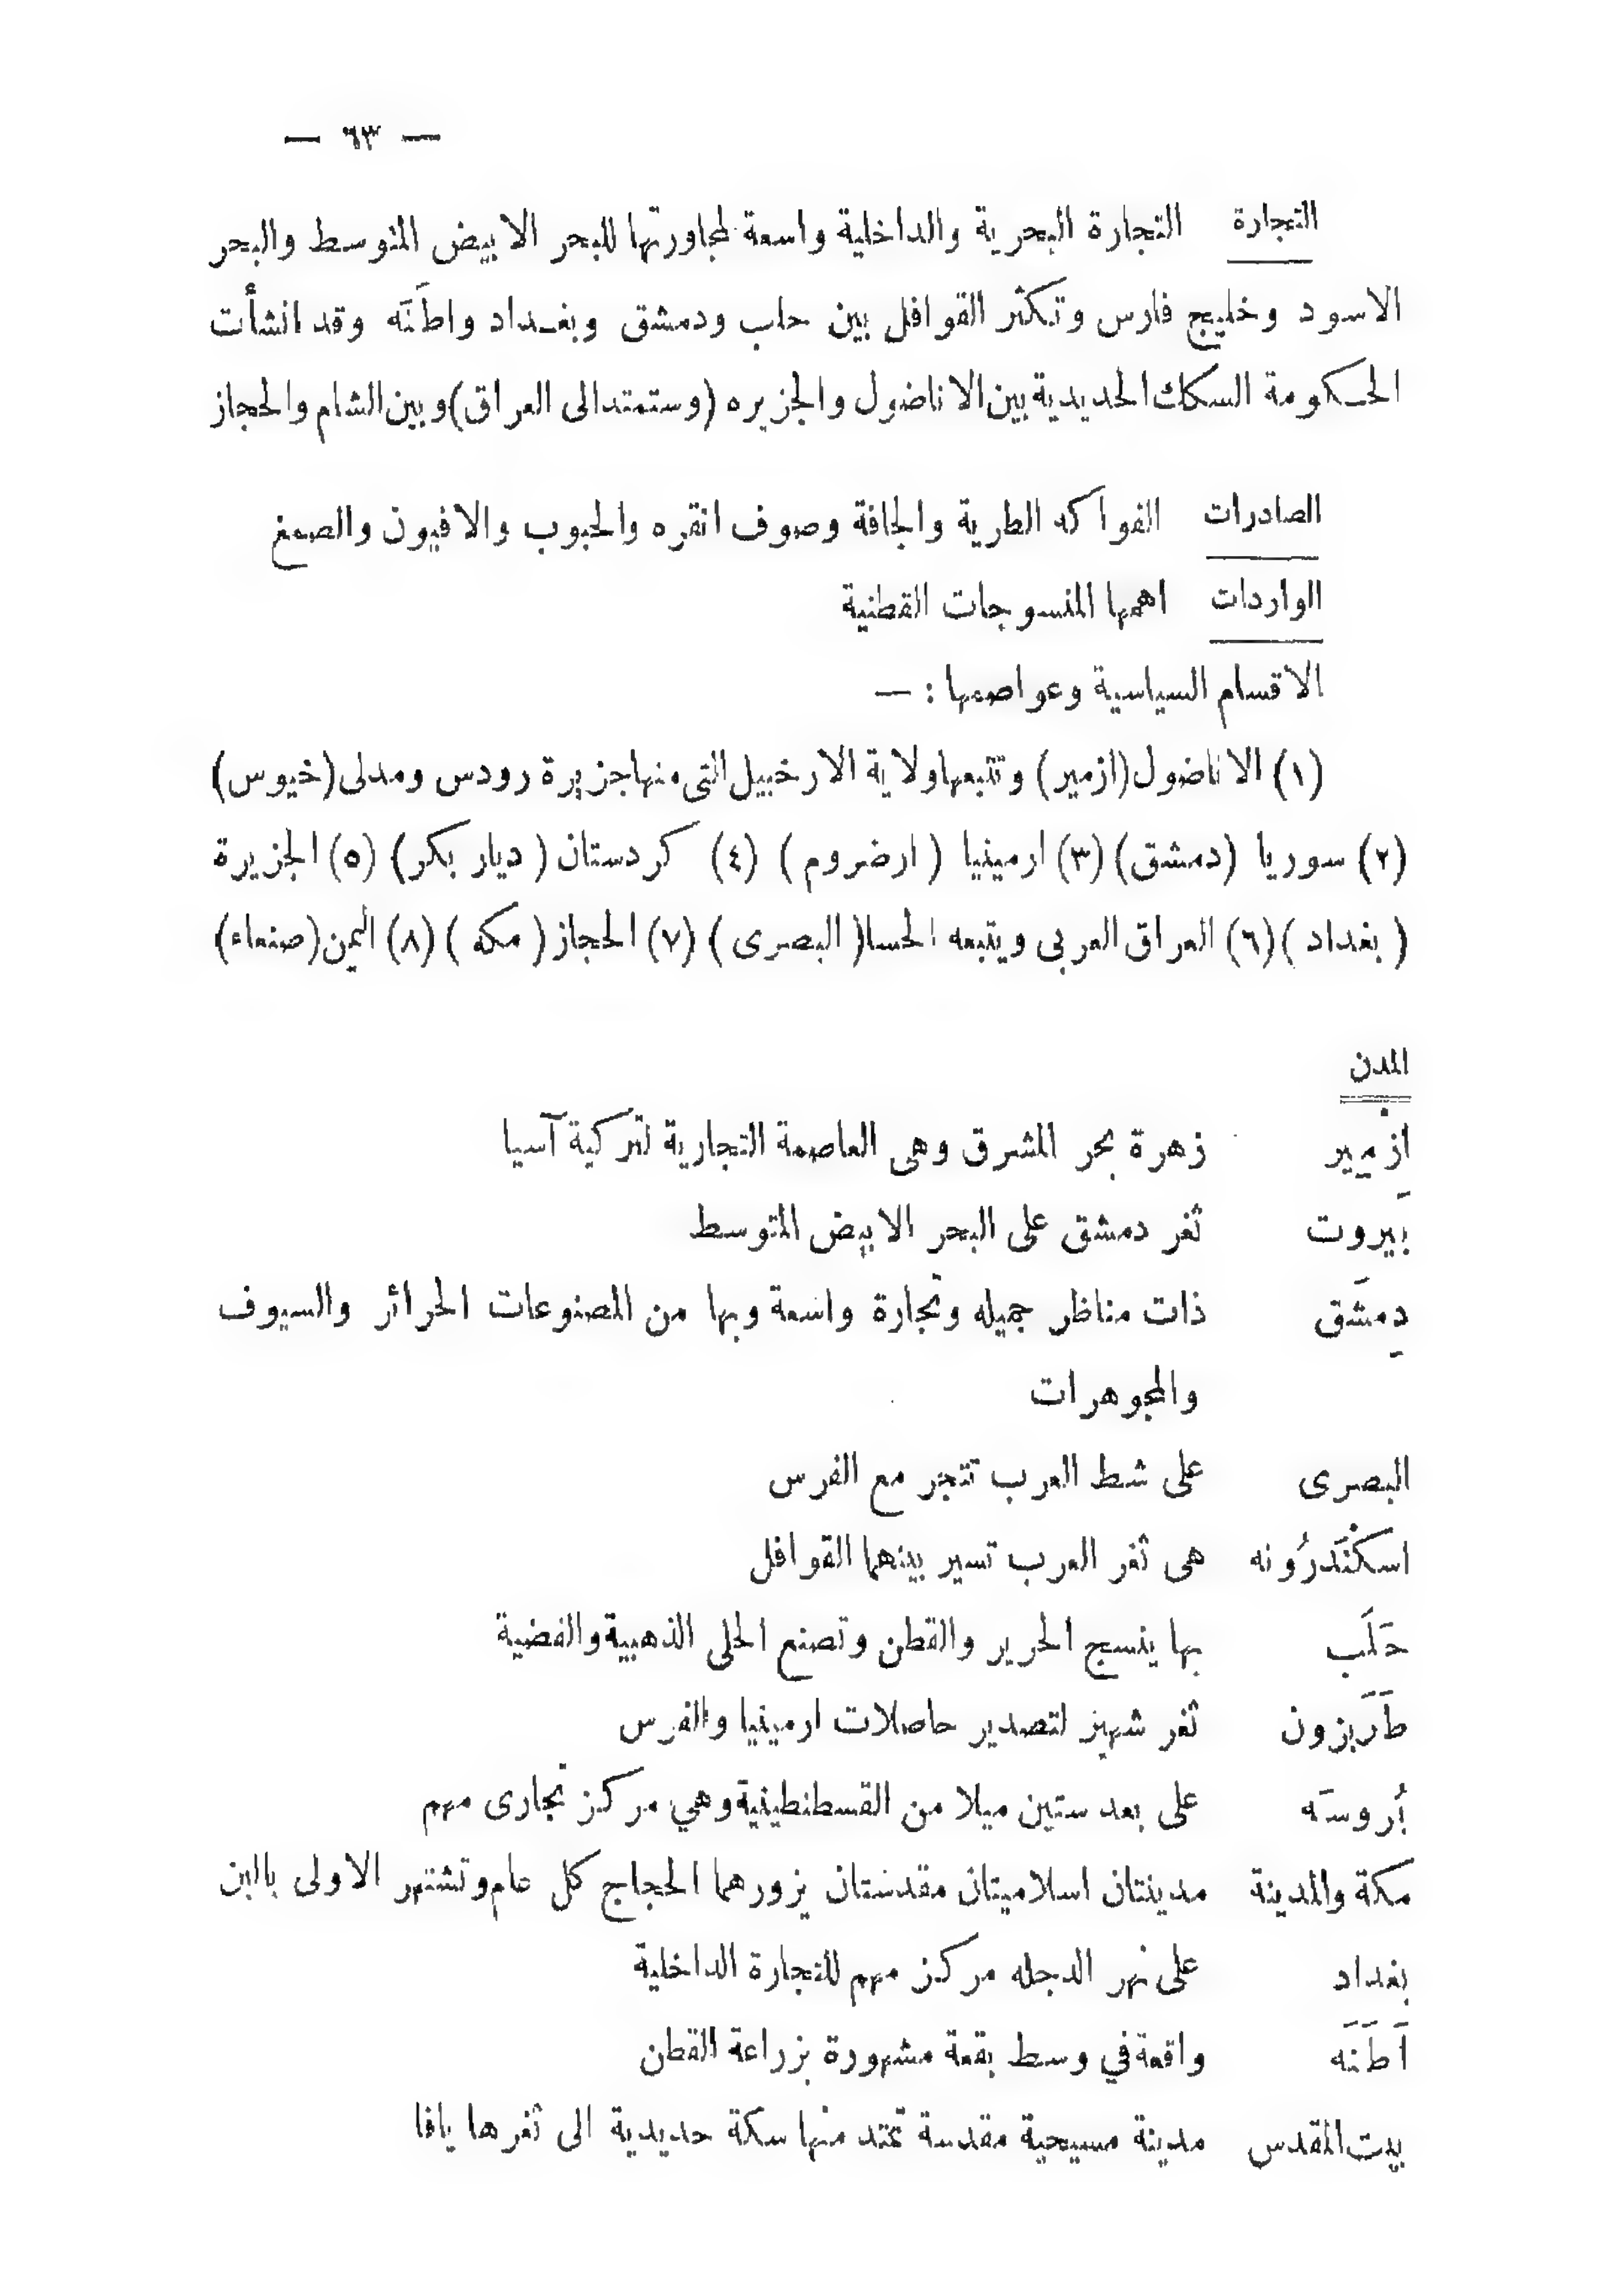 — ٦٣ —
التجارة التجارة البحرية والداخلية واسعة لمجاورتها للبحر الابيض المتوسط والبحر
الاسود وخليج فارس وتكثر القوافل بين حلب ودمشق وبغداد واطَنَه وقد انشأت
الحكومة السكك الحديدية بين الاناضول والجزيره (وستمتد الى العراق) وبين الشام والحجاز
الصادرات الفواكه الطرية والجافة وصوف انقره والحبوب والافيون والصمغ
الواردات اهمها المنسوجات القطنية
الاقسام السياسية وعواصمها : —
(١) الاناضول (ازمير) وتتبعها ولاية الارخبيل التى منها جزيرة رودس ومدلى (خيوس)
(٢) سوريا (دمشق) (٣) ارمينيا (ارضروم) (٤) كردستان (ديار بكر) (٥) الجزيرة
(بغداد) (٦) العراق العربى ويتبعه الحسا (البصرى) (٧) الحجاز (مكه) (٨) اليمن (صنعاء)
المدن
ازْمِير زهرة بحر المشرق وهى العاصمة التجارية لتركية آسيا
بَيروت ثغر دمشق على البحر الابيض المتوسط
دِمَشق ذات مناظر جميله وتجارة واسعة وبها من المصنوعات الحرائر والسيوف
والمجوهرات
البصرى على شط العرب تتجر مع الفرس
اسكنْدَرُونه هى ثغر العرب تسير بينهما القوافل
حَلَب بها ينسج الحرير والقطن وتصنع الحلى الذهبية والفضية
طَرَبزون ثغر شهير لتصدير حاصلات ارمينيا والفرس
بُروسَه على بعد ستين ميلا من القسطنطينية وهي مركز تجارى مهم
مكة والمدينة مدينتان اسلاميتان مقدستان يزورهما الحجاج كل عام وتشتهر الاولى بالبن
بغداد على نهر الدجله مركز مهم للتجارة الداخلية
اَطَنَه واقعة في وسط بقعة مشهورة بزراعة القطن
بيت المقدس مدينة مسيحية مقدسة تمتد منها سكة حديدية الى ثغرها يافا